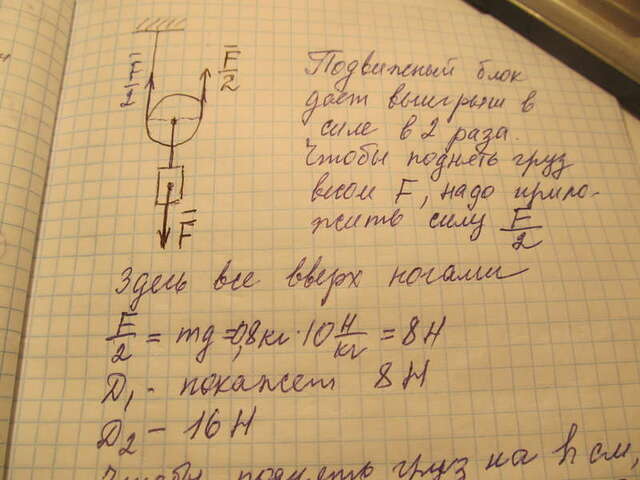 F/2
F/2
F
Подвижный блок
дает выигрыш в
силе в 2 раза.
Чтобы поднять груз
весом F, надо прило-
жить силу F/2
Здесь все вверх ногами
F/2 = mg = 0,8кг · 10 Н/кг = 8Н
D₁ - покажет 8Н
D₂ - 16Н
Чтобы поднять груз на h см,